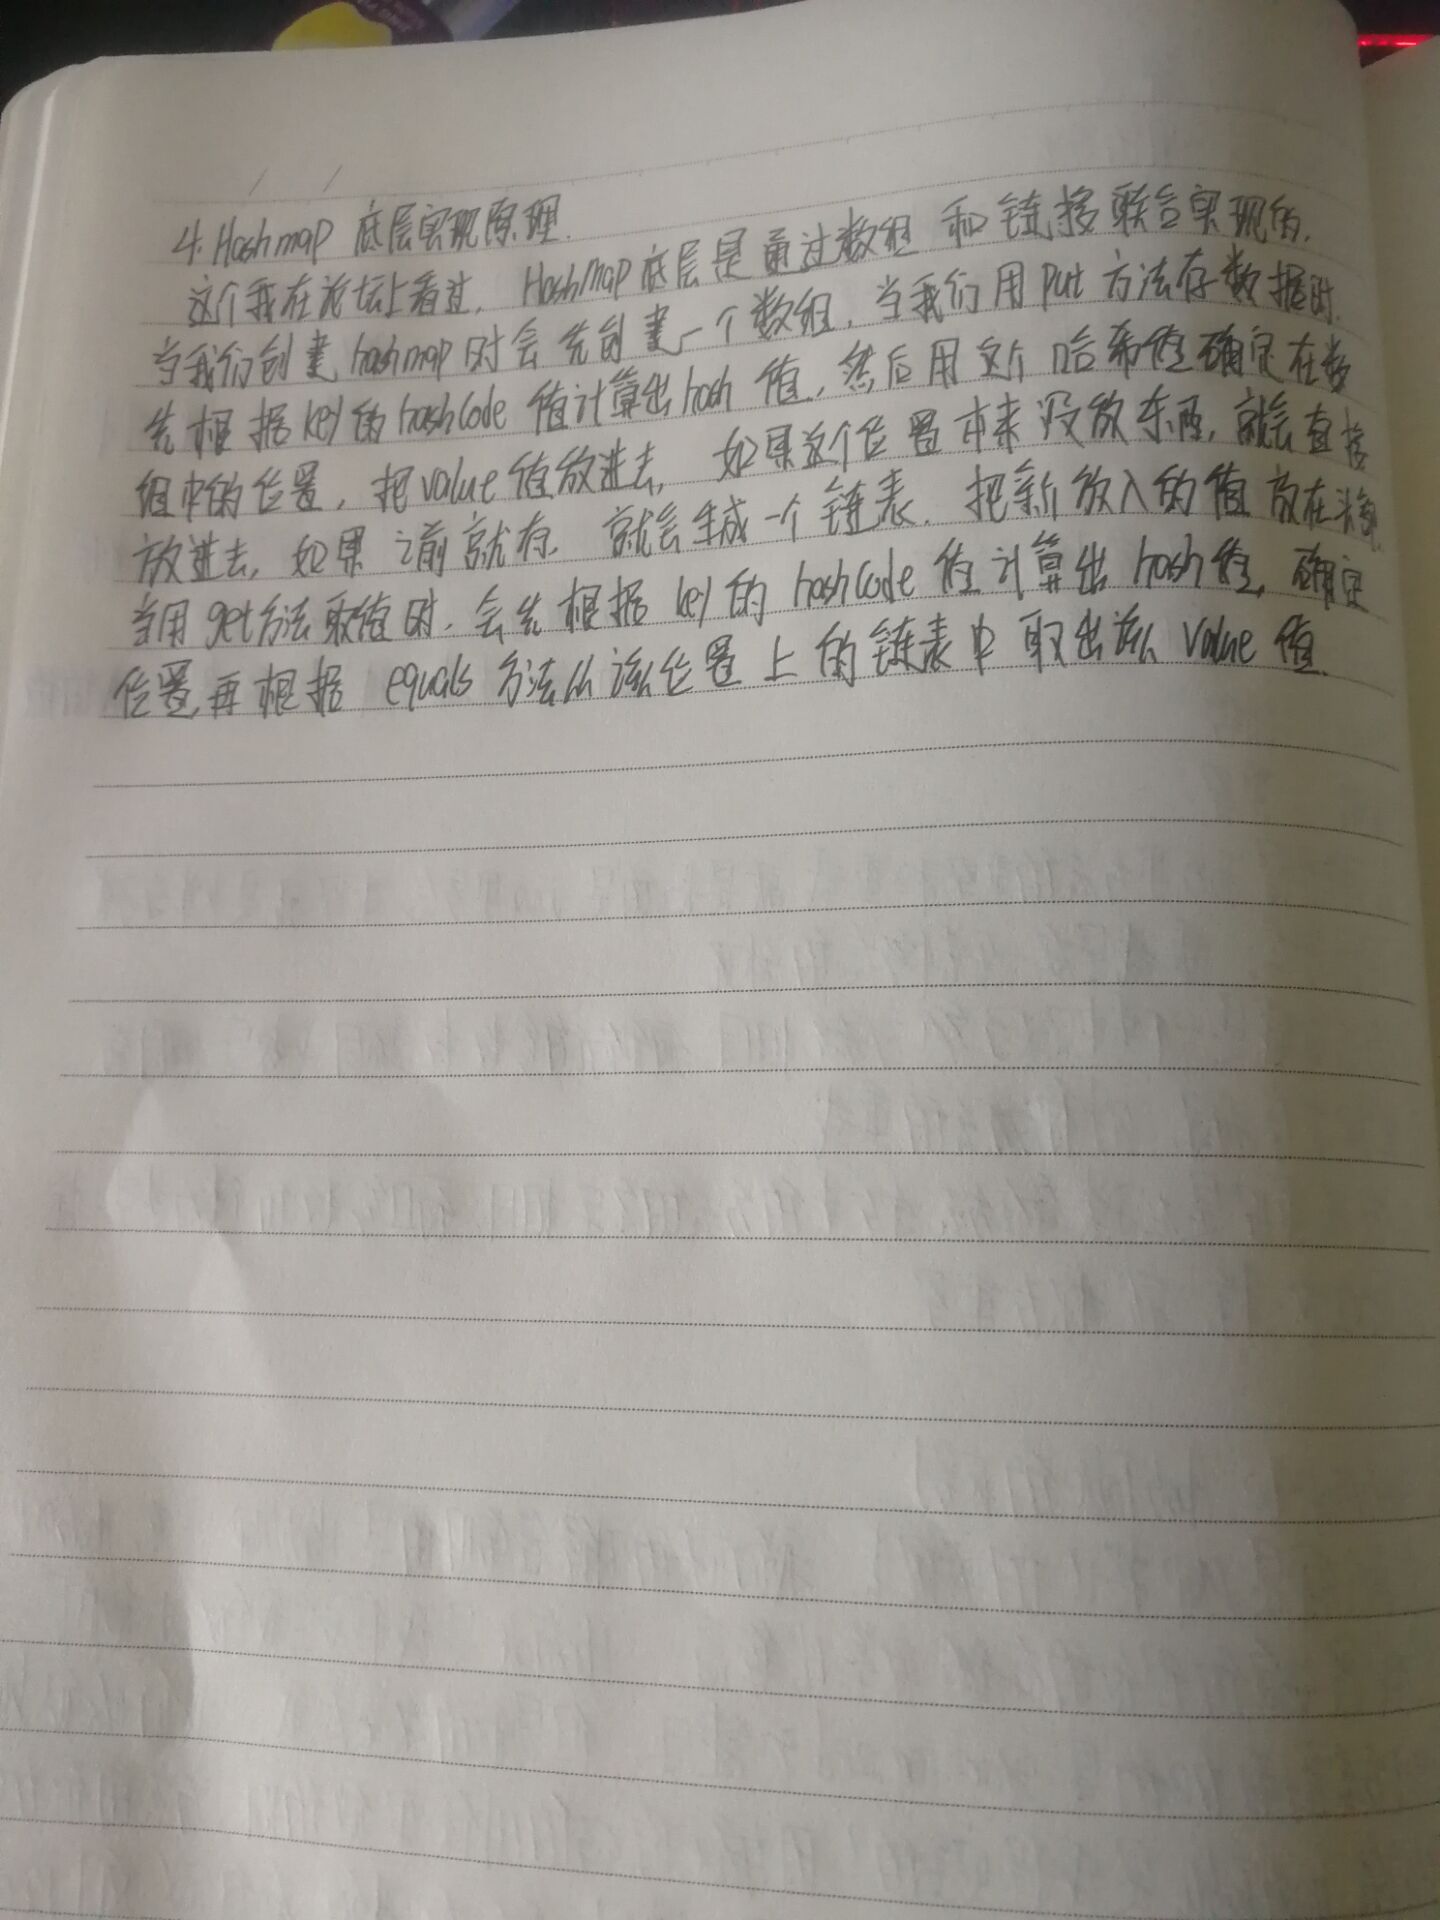 4. Hashmap 底层实现原理.
这个我在论坛上看过, HashMap底层是通过数组 和 链接联合实现的.
当我们创建 hashmap 时会先创建一个数组, 当我们用 put 方法存数据时.
先根据key的hashCode 值计算出hash 值, 然后用这个哈希值确定在数
组中的位置, 把value值放进去, 如果这个位置本来没放东西, 就会直接
放进去, 如果之前就有. 就会生成一个链表. 把新放入的值放在头部.
当用get方法取值时. 会先根据key的hashCode值计算出hash值, 确定
位置,再根据 equals 方法从该位置上的链表中取出该 value 值.